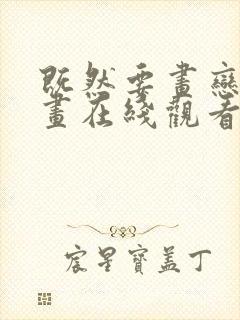 既然要畫戀
畫在綫觀看
宸星寶蓋丁